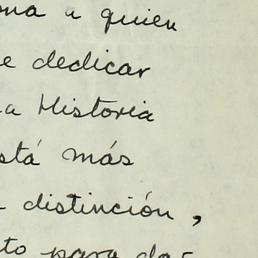 ona a quien
e dedicar
a Historia
stá más
distinción,
to para da-